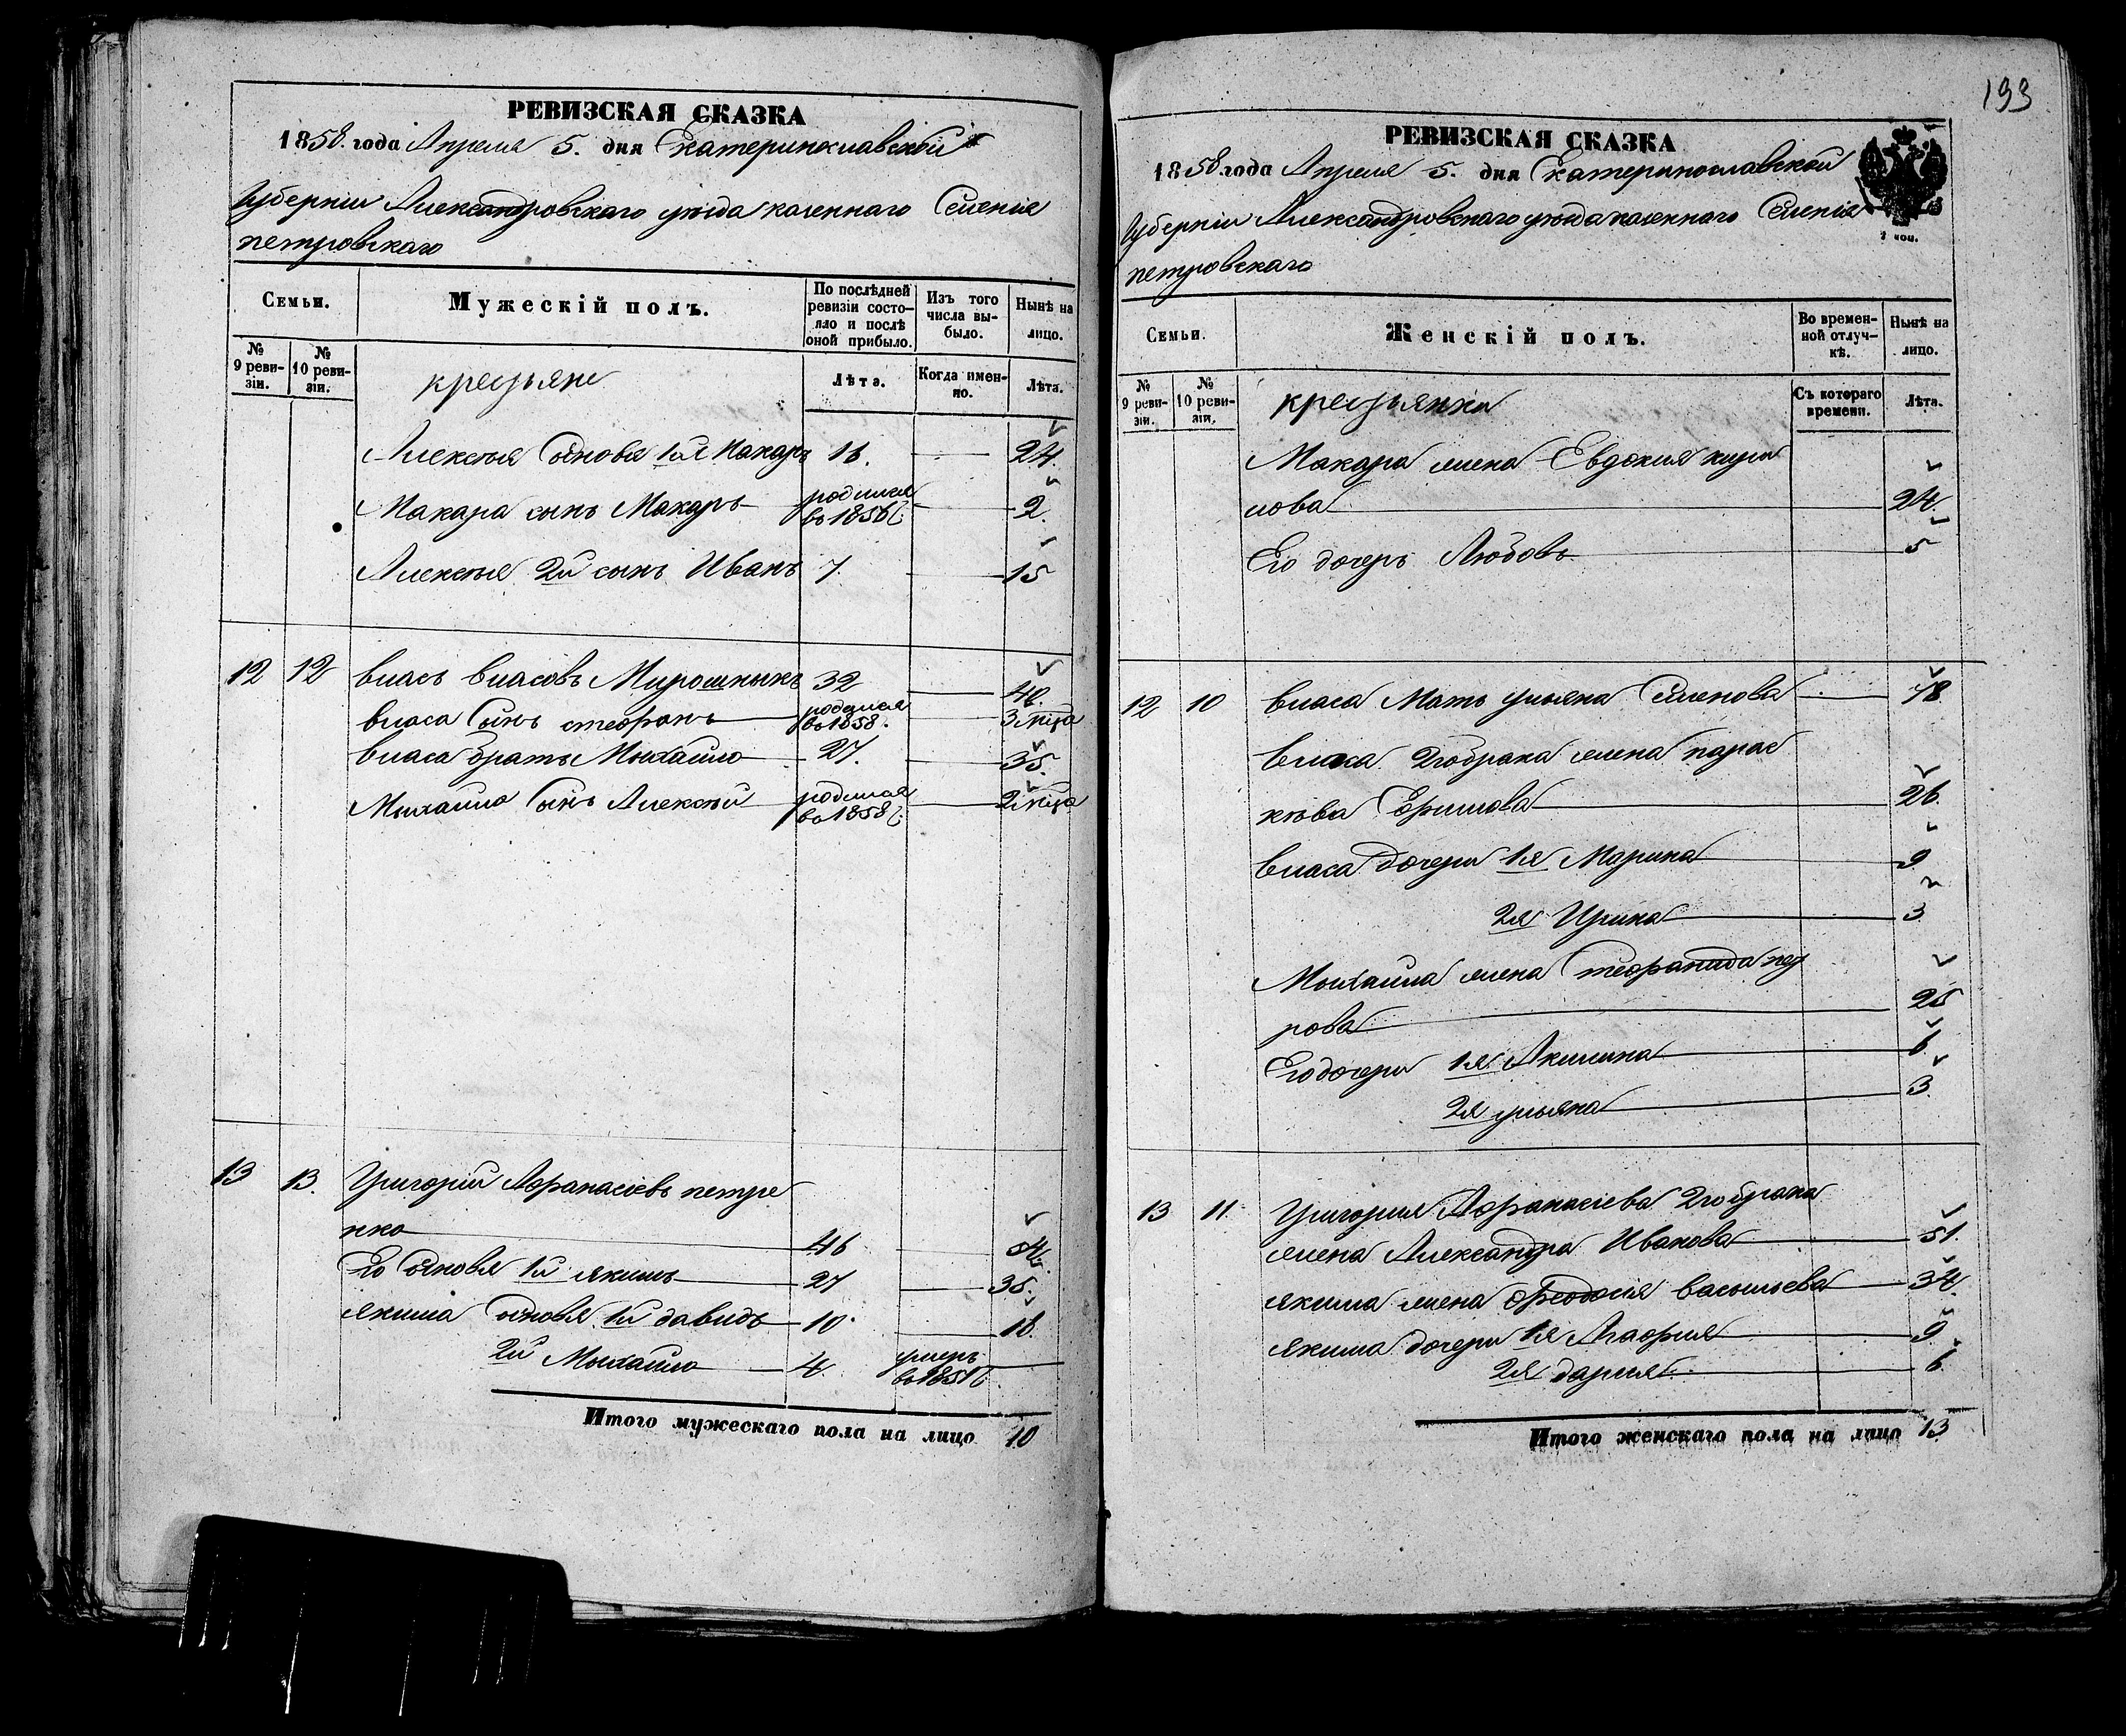 РЕВИЗСКАЯ СКАЗКА
1858. года Апреля 5. дня Екатеринославской
Губерніи Александровскаго уѣзда казеннаго Селенія
петровскаго
Семьи.
Мужескій полъ.
По послѣдней ревизіи состояло и послѣ оной прибыло.
Изъ того числа выбыло.
Нынѣ на лицо.
№ 9 ревизіи.
№ 10 ревизіи.
крестьяне
Лѣта.
Когда именно.
Лѣта.
Алексѣя Сыновья 1й Макаръ 16. 24.
Макара сынъ Макаръ родился въ 1856 г. 2.
Алексѣя 2й сынъ Иванъ 7. 15
12 12 власъ власовъ Мирошныкъ 32 40.
власа Сынъ стефанъ родился въ 1858. 3 мѣца
власа братъ Мыхайло 27. 35.
Мыхайла Сынъ Алексѣй родился въ 1858 г. 2 мѣца
13 13. Григорій Афанасіевъ петре
нко 46 54.
Его Сыновья 1й якимъ 27 35.
якима Сыновья 1й давидъ 10 18
2й Мыхайло 4. умеръ въ 1851 г.
Итого мужескаго пола на лицо 10
193
РЕВИЗСКАЯ СКАЗКА
1858 года Апреля 5. дня Екатеринославской
Губерніи Александровскаго уѣзда казеннаго Селенія
петровскаго
Семьи.
Женскій полъ.
Во временной отлучкѣ.
Нынѣ на лицо.
№ 9 ревизіи.
№ 10 ревизіи.
крестьянки
Съ котораго времени.
Лѣта.
Макара жена Евдокия кири
лова 24.
Его дочерь Любовь 5
12 10 власа Мать ульяна Семенова 78
власа 2го брака жена парас
кѣва Ефимова 26.
власа дочери 1я Марина 9
2я Ирина 3
Мыхайла жена Стефанида пет
рова 25
Его дочери 1я Акилина 6
2я ульяна 3.
13 11. Григория Афанасіева 2го брака
жена Александра Иванова 51.
якима жена Феодосия васильева 34.
якима дочери 1я Агафия 9
2я дария 6.
Итого женскаго пола на лицо 13